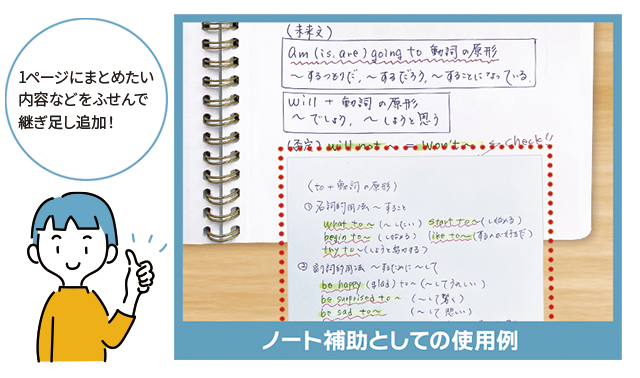 1ページにまとめたい
内容などをふせんで
継ぎ足し追加！
(未来文)
am (is. are) going to 動詞の原形
〜するつもりだ, 〜するだろう, 〜することになっている.
will + 動詞の原形
〜でしょう, 〜しようと思う
(否定) will not 〜 = won't 〜 ← check!!
(to + 動詞の原形)
① 名詞的用法 〜すること
what to 〜 (〜したい) start to 〜 (し始める)
begin to 〜 (し始める) like to 〜 (するのが好きだ)
try to 〜 (しようと努力する)
② 副詞的用法 〜するために 〜して
be happy (glad) to 〜 (〜してうれしい)
be surprised to 〜 (〜して驚く)
be sad to 〜 (〜して悲しい)
ノート補助としての使用例